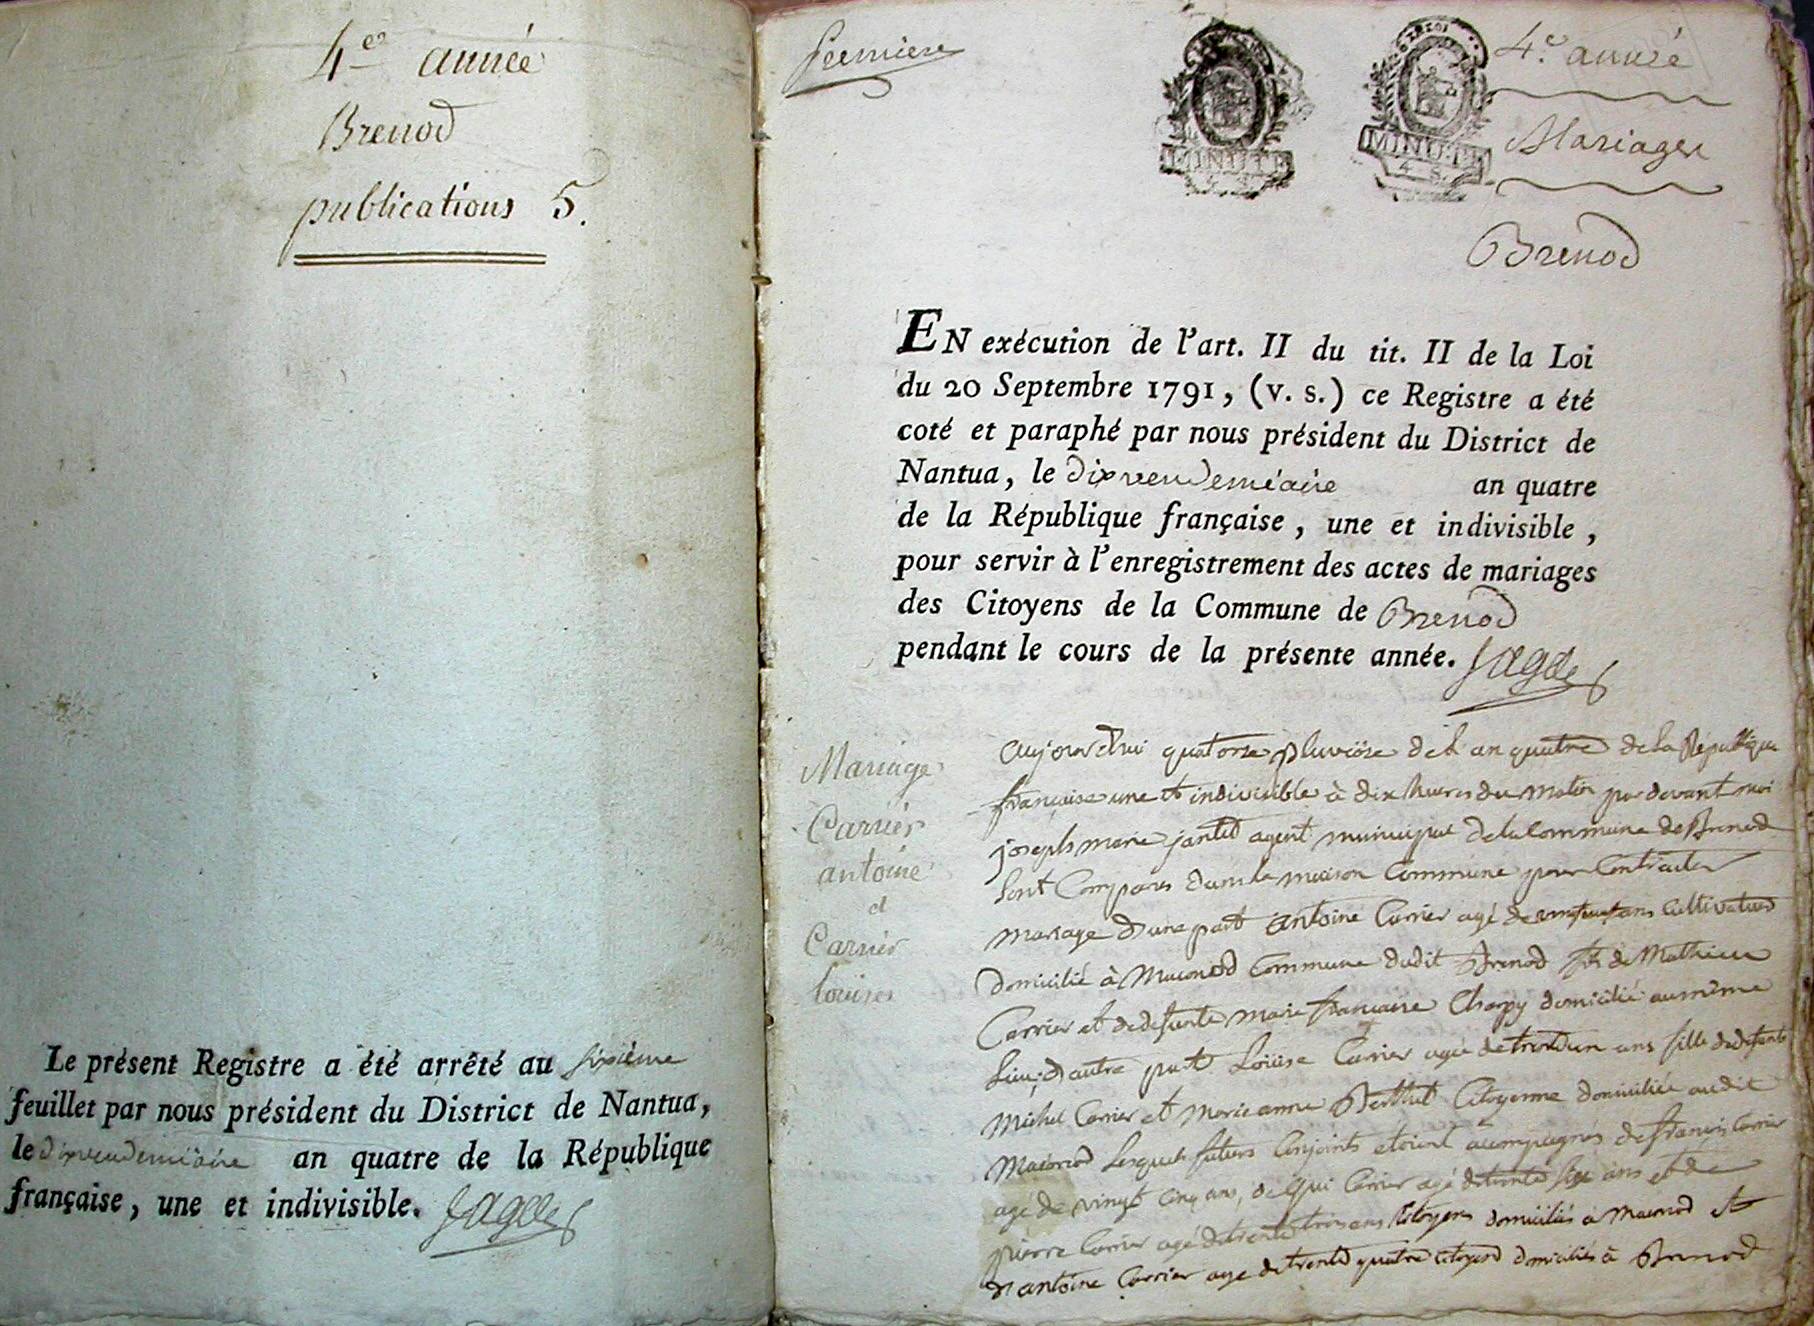 4e année
Brenod
publications 5.
Le présent Registre a été arrêté au sixième
feuillet par nous président du District de Nantua,
le dix vendemiaire an quatre de la République
française, une et indivisible.
premiere
MINUTE
MINUTE
4. S.
4e. année
Mariages
Brenod
EN exécution de l'art. II du tit. II de la Loi
du 20 Septembre 1791, (v. s.) ce Registre a été
coté et paraphé par nous président du District de
Nantua, le dix vendemiaire an quatre
de la République française, une et indivisible,
pour servir à l'enregistrement des actes de mariages
des Citoyens de la Commune de Brenod
pendant le cours de la présente année.
Mariage
Carrier
antoine
et
Carrier
louise
aujourdhui quatorze pluviôse de l an quatre de la République
française une et indivisible à dix heures du matin par devant moi
joseph marie jantet agent municipal de la Commune de Brenod
sont Comparus dans la maison Commune pour Contracter
mariage d une part antoine Carrier agé de ans cultivateur
domicilié à Maconod Commune dudit Brenod fils de Mathieu
Carrier et de defunte marie françoise Charpy domicilié au même
lieu, d autre part Louise Carrier agée de trente un ans fille de defunt
michel Carrier et marie anne Berthet Citoyenne domiciliée audit
Maconod Lesquels futurs Conjoints etoient acompagnés de françois Carrier
agé de vingt cinq ans, Carrier agé de trente six ans et de
pierre Carrier agé de trente trois ans Citoyens domiciliés à Maconod et
d antoine Carrier age de trente quatre citoyen domiciliés à Brenod